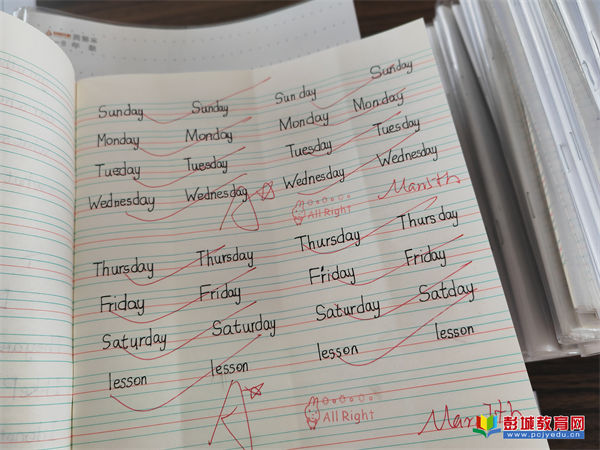 Sunday Sunday Sunday Sunday
Monday Monday Monday Monday
Tuesday Tuesday Tuesday Tuesday
Wednesday Wednesday Wednesday Wednesday
All Right
Thursday Thursday Thursday Thursday
Friday Friday Friday Friday
Saturday Saturday Saturday Satday
lesson lesson lesson lesson
All Right
彭城教育网
www.pcjyedu.cn